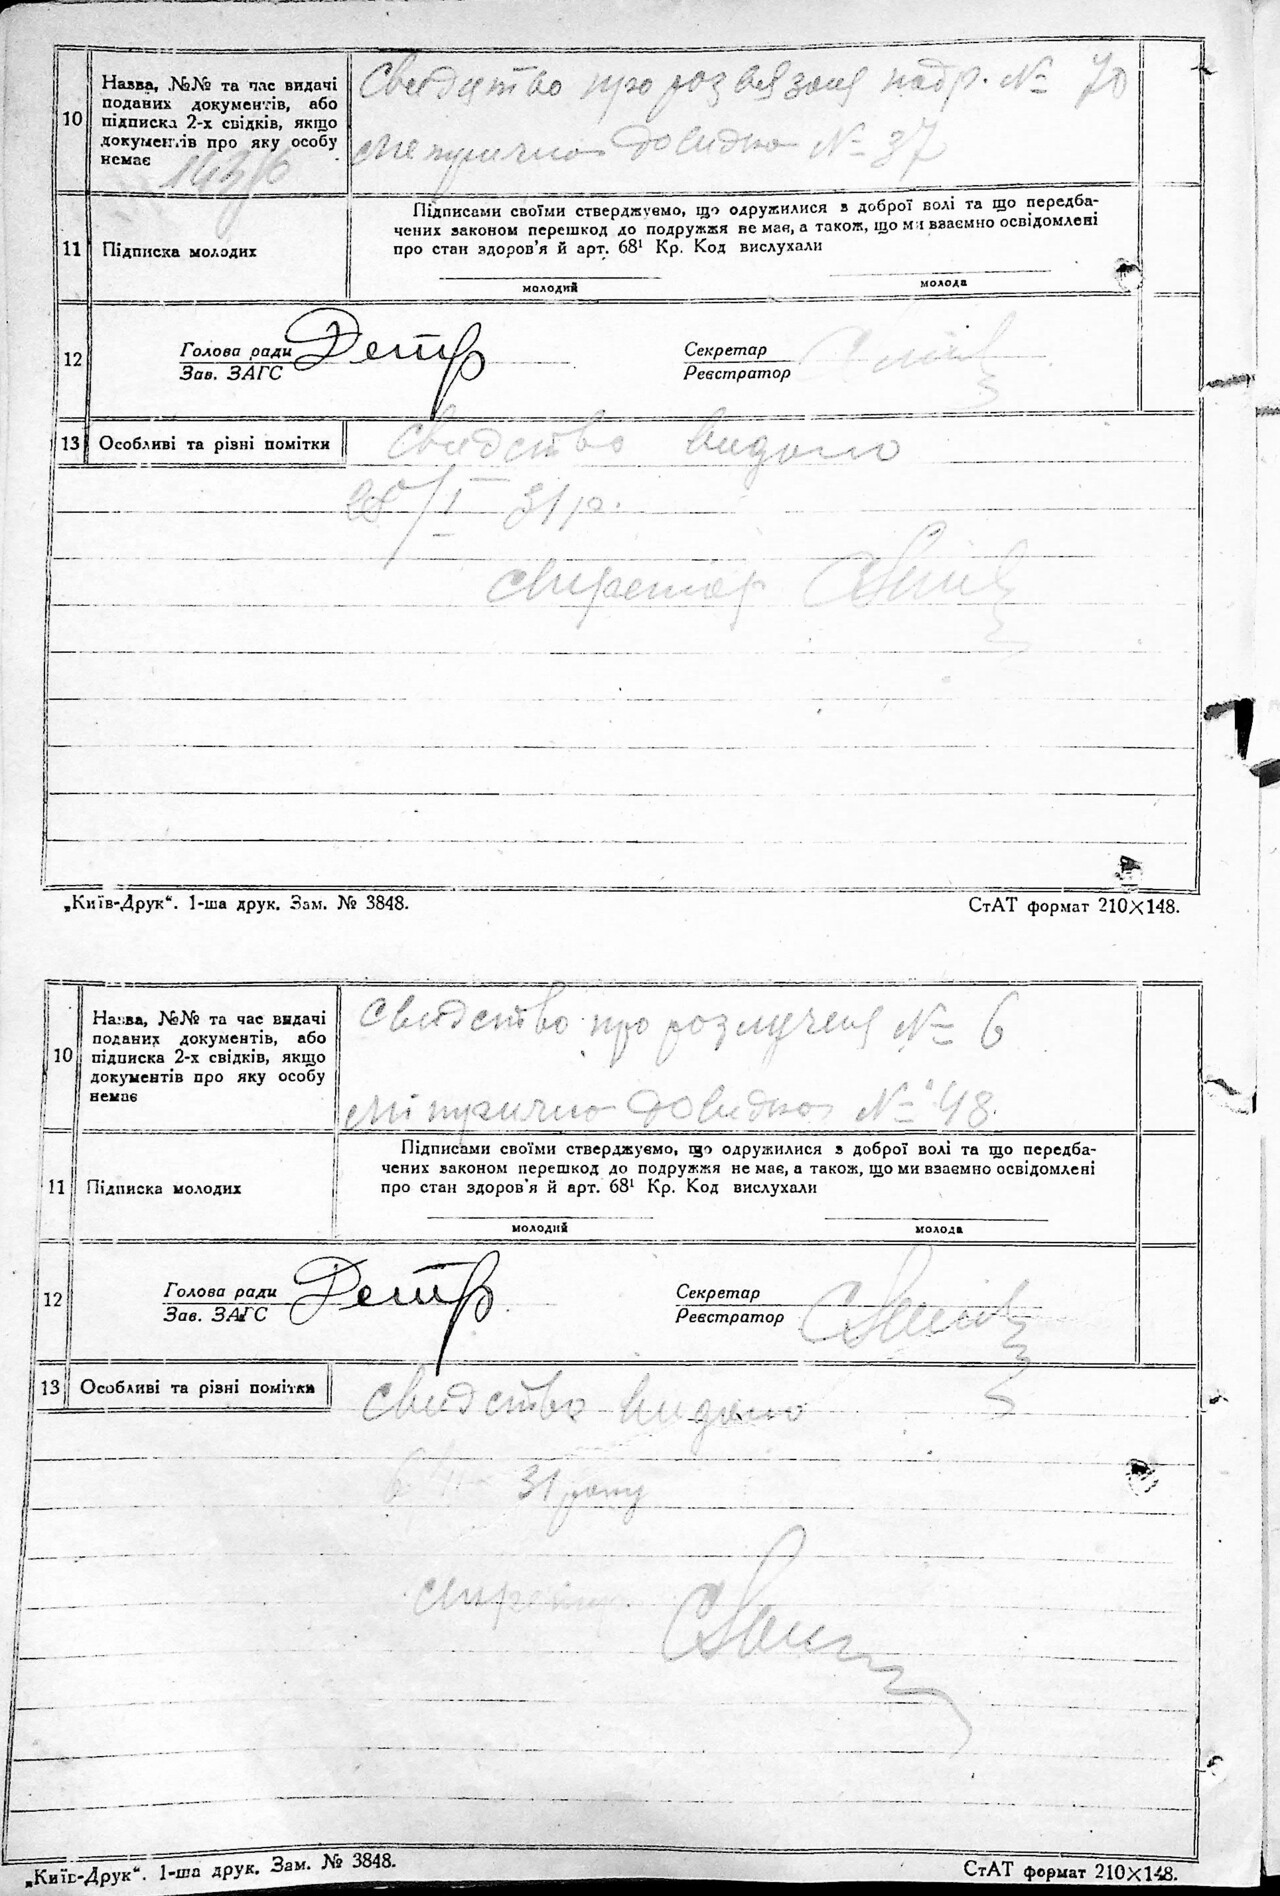 10
Назва, №№ та час видачі
поданих документів, або
підписка 2-х свідків, якщо
документів про яку особу
немає
Свидство про розвязаня подр. № 70
довидка № 37
11
Підписка молодих
Підписами своїми стверджуємо, що одружилися з доброї волі та що передба-
чених законом перешкод до подружжя не має, а також, що ми взаємно освідомлені
про стан здоров'я й арт. 68¹ Кр. Код вислухали
молодий
молода
12
Голова ради
Зав. ЗАГС
Секретар
Реєстратор
13
Особливі та різні помітки
Свидство видано
25/I 31 р.
секретар
„Київ-Друк“. 1-ша друк. Зам. № 3848.
СтАТ формат 210×148.
10
Назва, №№ та час видачі
поданих документів, або
підписка 2-х свідків, якщо
документів про яку особу
немає
Свидство про розлученя № 6
довидка № 48
11
Підписка молодих
Підписами своїми стверджуємо, що одружилися з доброї волі та що передба-
чених законом перешкод до подружжя не має, а також, що ми взаємно освідомлені
про стан здоров'я й арт. 68¹ Кр. Код вислухали
молодий
молода
12
Голова ради
Зав. ЗАГС
Секретар
Реєстратор
13
Особливі та різні помітки
Свидство видано
31 року
„Київ-Друк“. 1-ша друк. Зам. № 3848.
СтАТ формат 210×148.